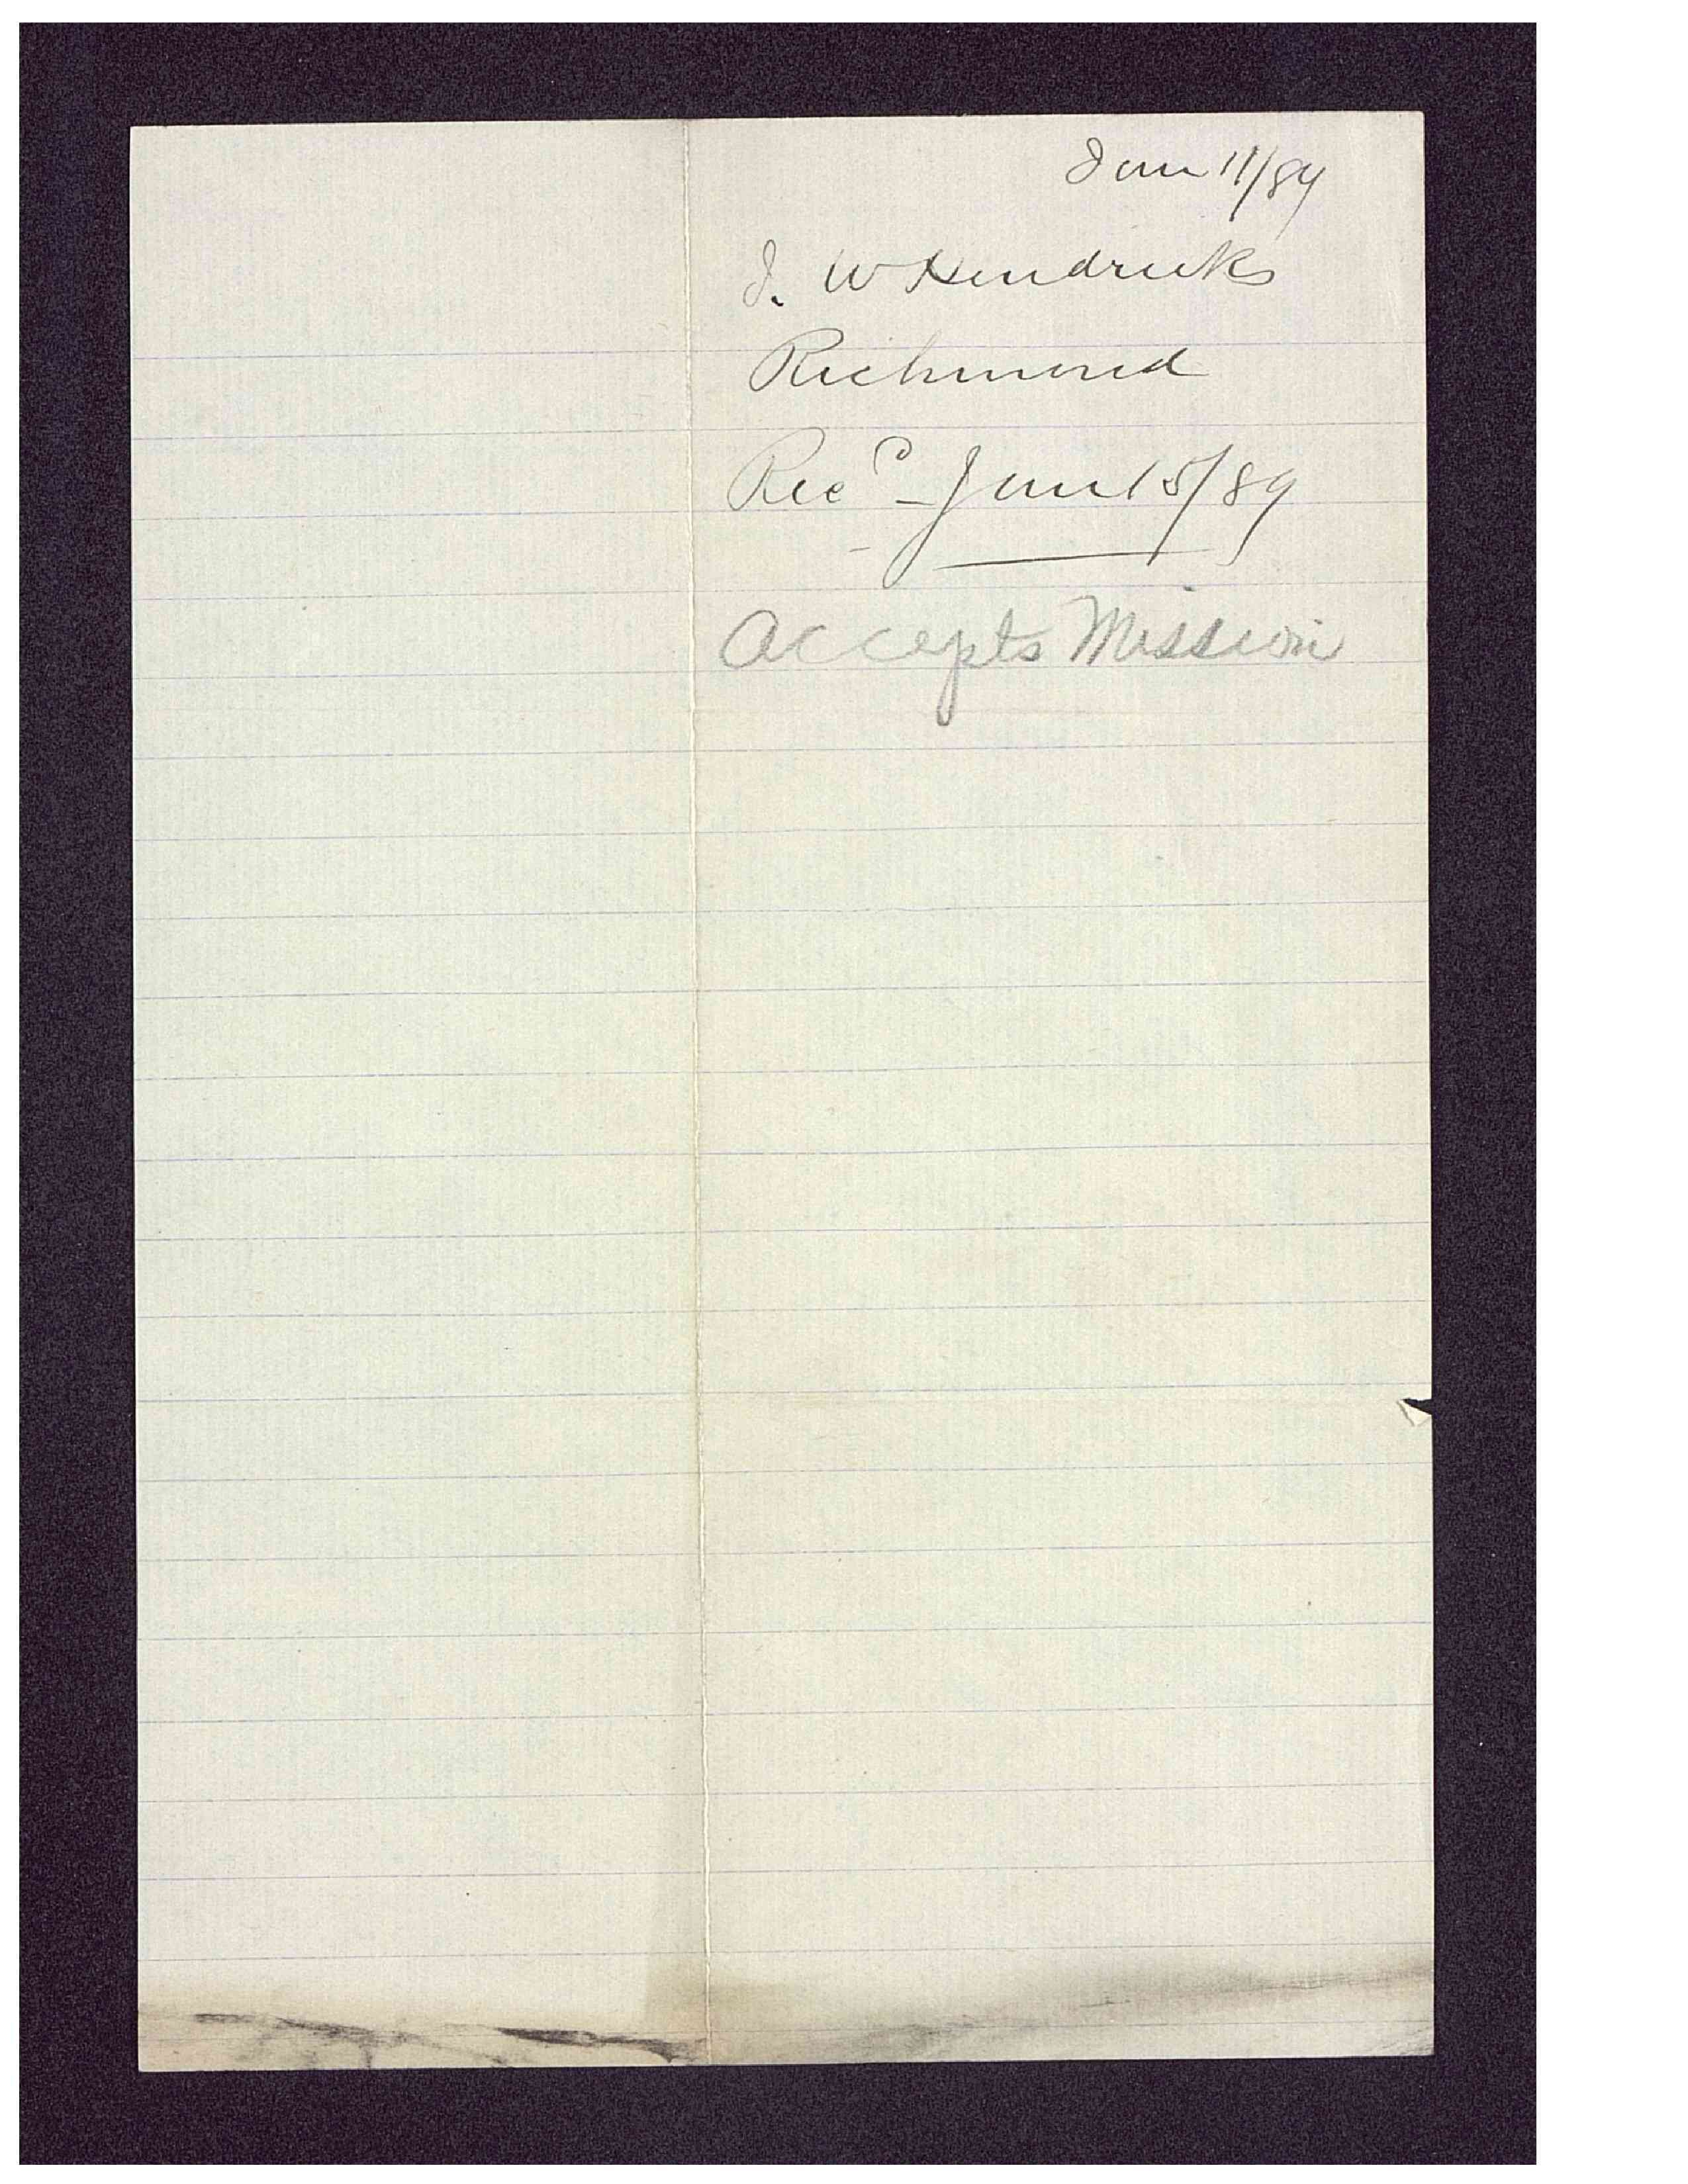 Jan 11/89
J. W Hendricks
Richmond
Recd Jan 15/89
Accepts Mission